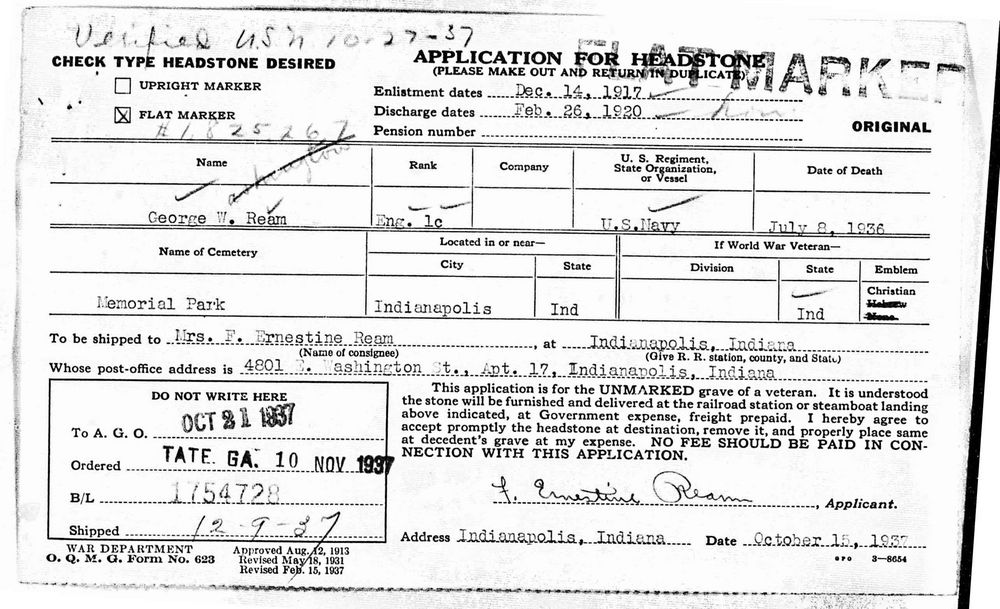 Verified USN 10-27-37
FLAT MARKER
CHECK TYPE HEADSTONE DESIRED
UPRIGHT MARKER
FLAT MARKER
APPLICATION FOR HEADSTONE
(PLEASE MAKE OUT AND RETURN IN DUPLICATE)
Enlistment dates Dec. 14, 1917
Discharge dates Feb. 26, 1920 Hon
Pension number
ORIGINAL
Name
Rank
Company
U. S. Regiment,
State Organization,
or Vessel
Date of Death
George W. Ream
Eng. 1c
U.S.Navy
July 8, 1936
Name of Cemetery
Located in or near—
City
State
If World War Veteran—
Division
State
Emblem
Memorial Park
Indianapolis
Ind
Ind
Christian
Hebrew
None.
To be shipped to Mrs. F. Ernestine Ream, at Indianapolis, Indiana
(Name of consignee) (Give R. R. station, county, and State)
Whose post-office address is 4801 E. Washington St., Apt. 17, Indianapolis, Indiana
DO NOT WRITE HERE
OCT 21 1937
To A. G. O.
Ordered TATE. GA. 10 NOV 1937
B/L 1754728
Shipped 12-9-37
This application is for the UNMARKED grave of a veteran. It is understood
the stone will be furnished and delivered at the railroad station or steamboat landing
above indicated, at Government expense, freight prepaid. I hereby agree to
accept promptly the headstone at destination, remove it, and properly place same
at decedent's grave at my expense. NO FEE SHOULD BE PAID IN CON-
NECTION WITH THIS APPLICATION.
F. Ernestine Ream, Applicant.
Address Indianapolis, Indiana Date October 15, 1937
WAR DEPARTMENT
O. Q. M. G. Form No. 623
Approved Aug. 12, 1913
Revised May 18, 1931
Revised Feb. 15, 1937
GPO 3—8654